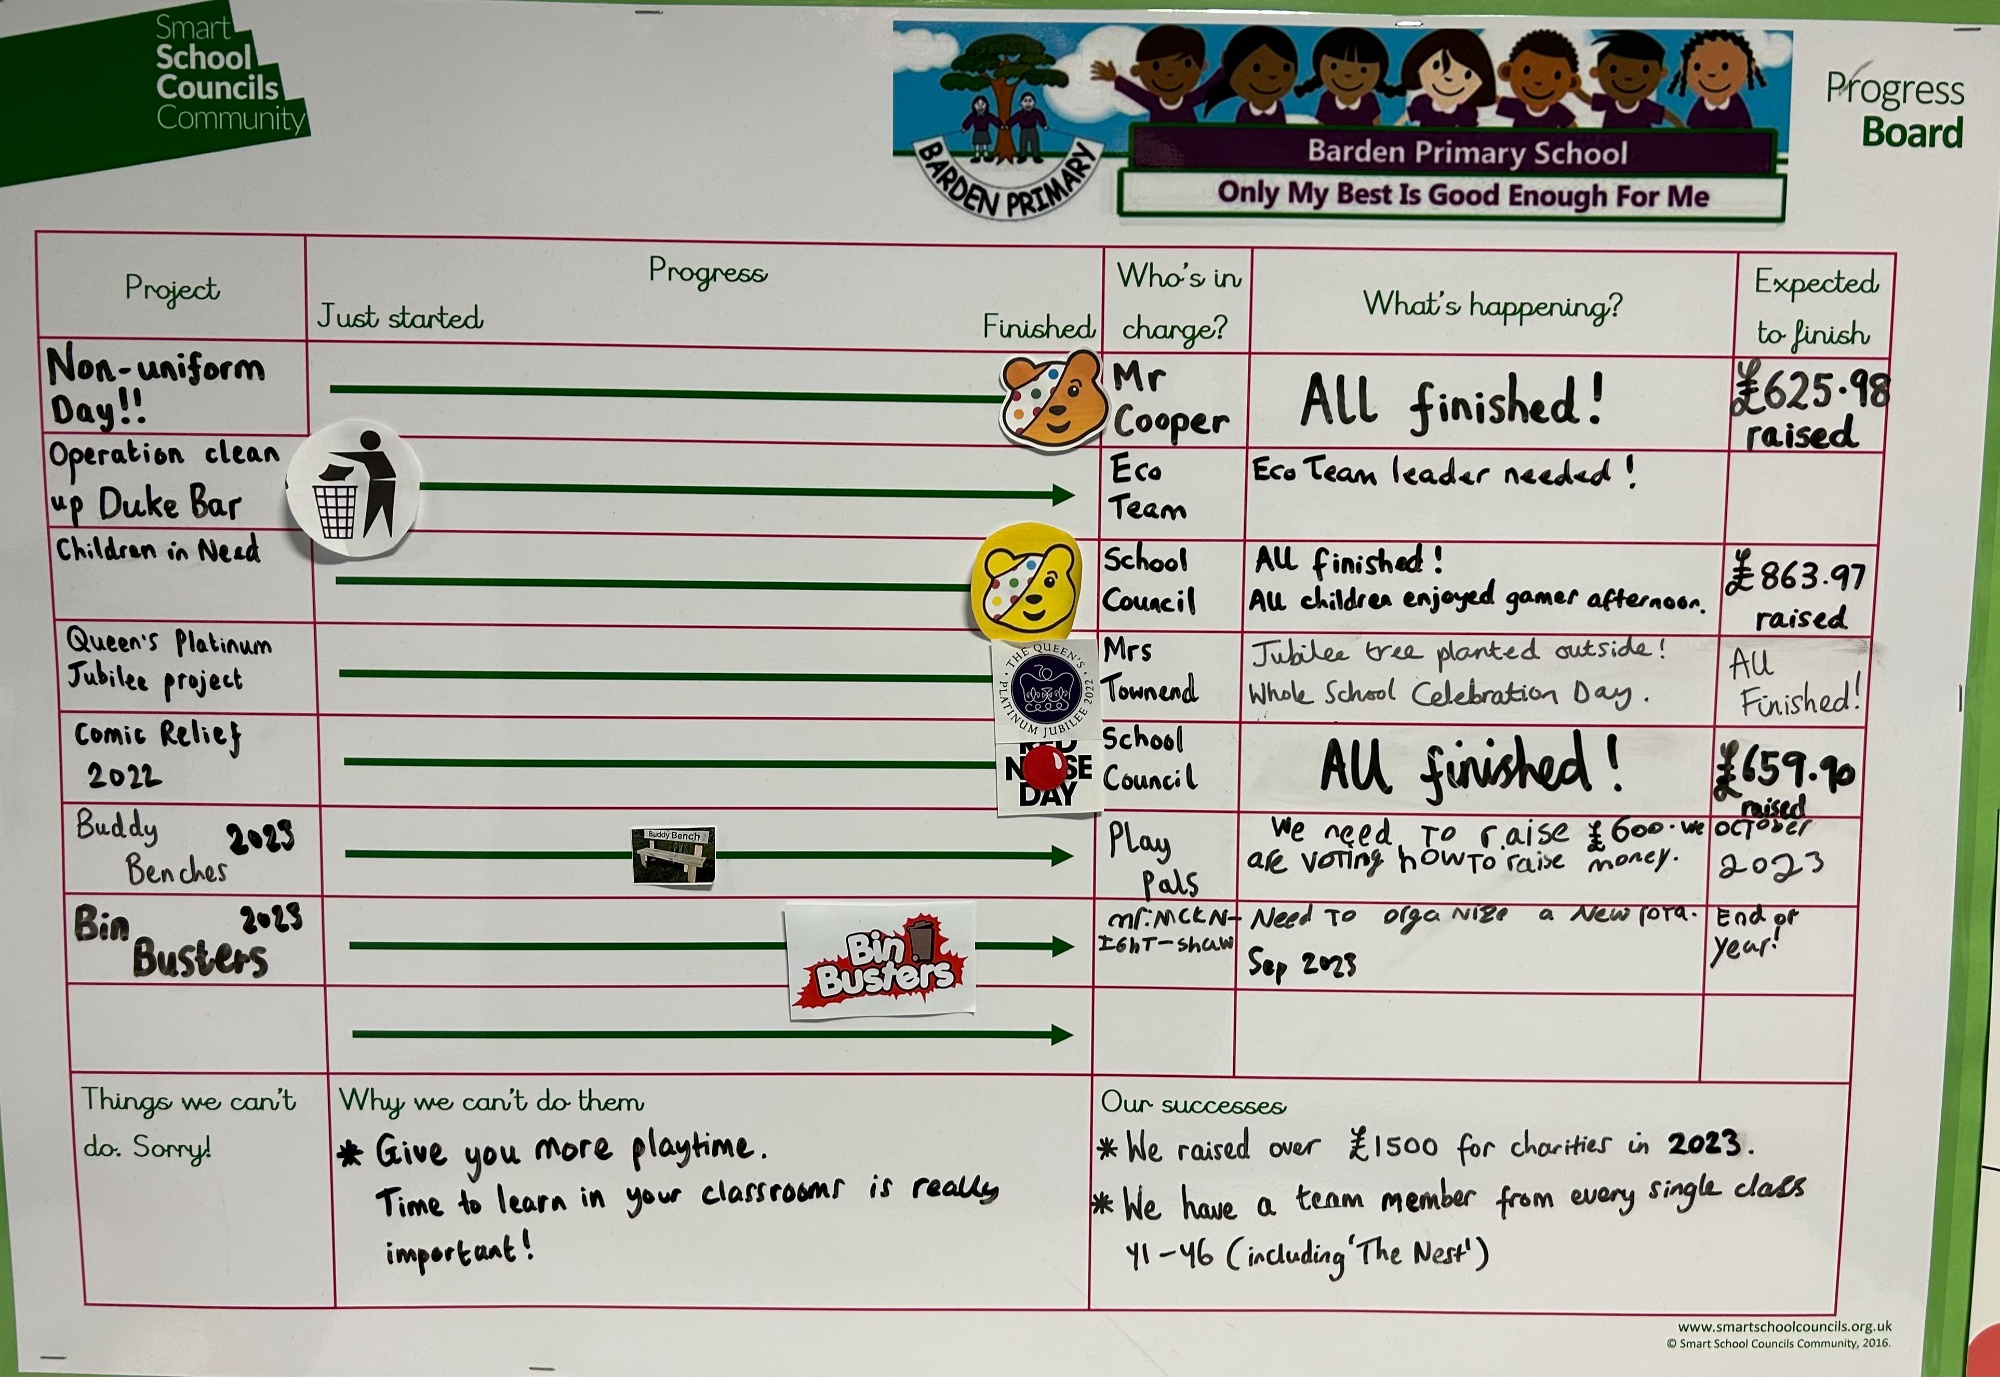 Smart
School
Councils
Community
BARDEN PRIMARY
Barden Primary School
Only My Best Is Good Enough For Me
Progress
Board
Project
Progress
Just started
Finished
Who's in
charge?
What's happening?
Expected
to finish
Non-uniform
Day!!
Mr
Cooper
All finished!
£625.98
raised
Operation clean
up Duke Bar
Eco
Team
Eco Team leader needed!
Children in Need
School
Council
All finished!
All children enjoyed gamer afternoon.
£863.97
raised
Queen's Platinum
Jubilee project
THE QUEEN'S
70
PLATINUM JUBILEE 2022
Mrs
Townend
Jubilee tree planted outside!
Whole School Celebration Day.
All
Finished!
Comic Relief
2022
RED
NOSE
DAY
School
Council
All finished!
£659.90
raised
Buddy 2023
Benches
Buddy Bench
Play
Pals
We need to raise £600. We
are voting how to raise money.
October
2023
Bin 2023
Busters
Bin
Busters
Mr. McKn-
ight-Shaw
Need to organize a new rota.
Sep 2023
End of
year!
Things we can't
do. Sorry!
Why we can't do them
* Give you more playtime.
Time to learn in your classrooms is really
important!
Our successes
* We raised over £1500 for charities in 2023.
* We have a team member from every single class
Y1-Y6 (including 'The Nest')
www.smartschoolcouncils.org.uk
© Smart School Councils Community, 2016.